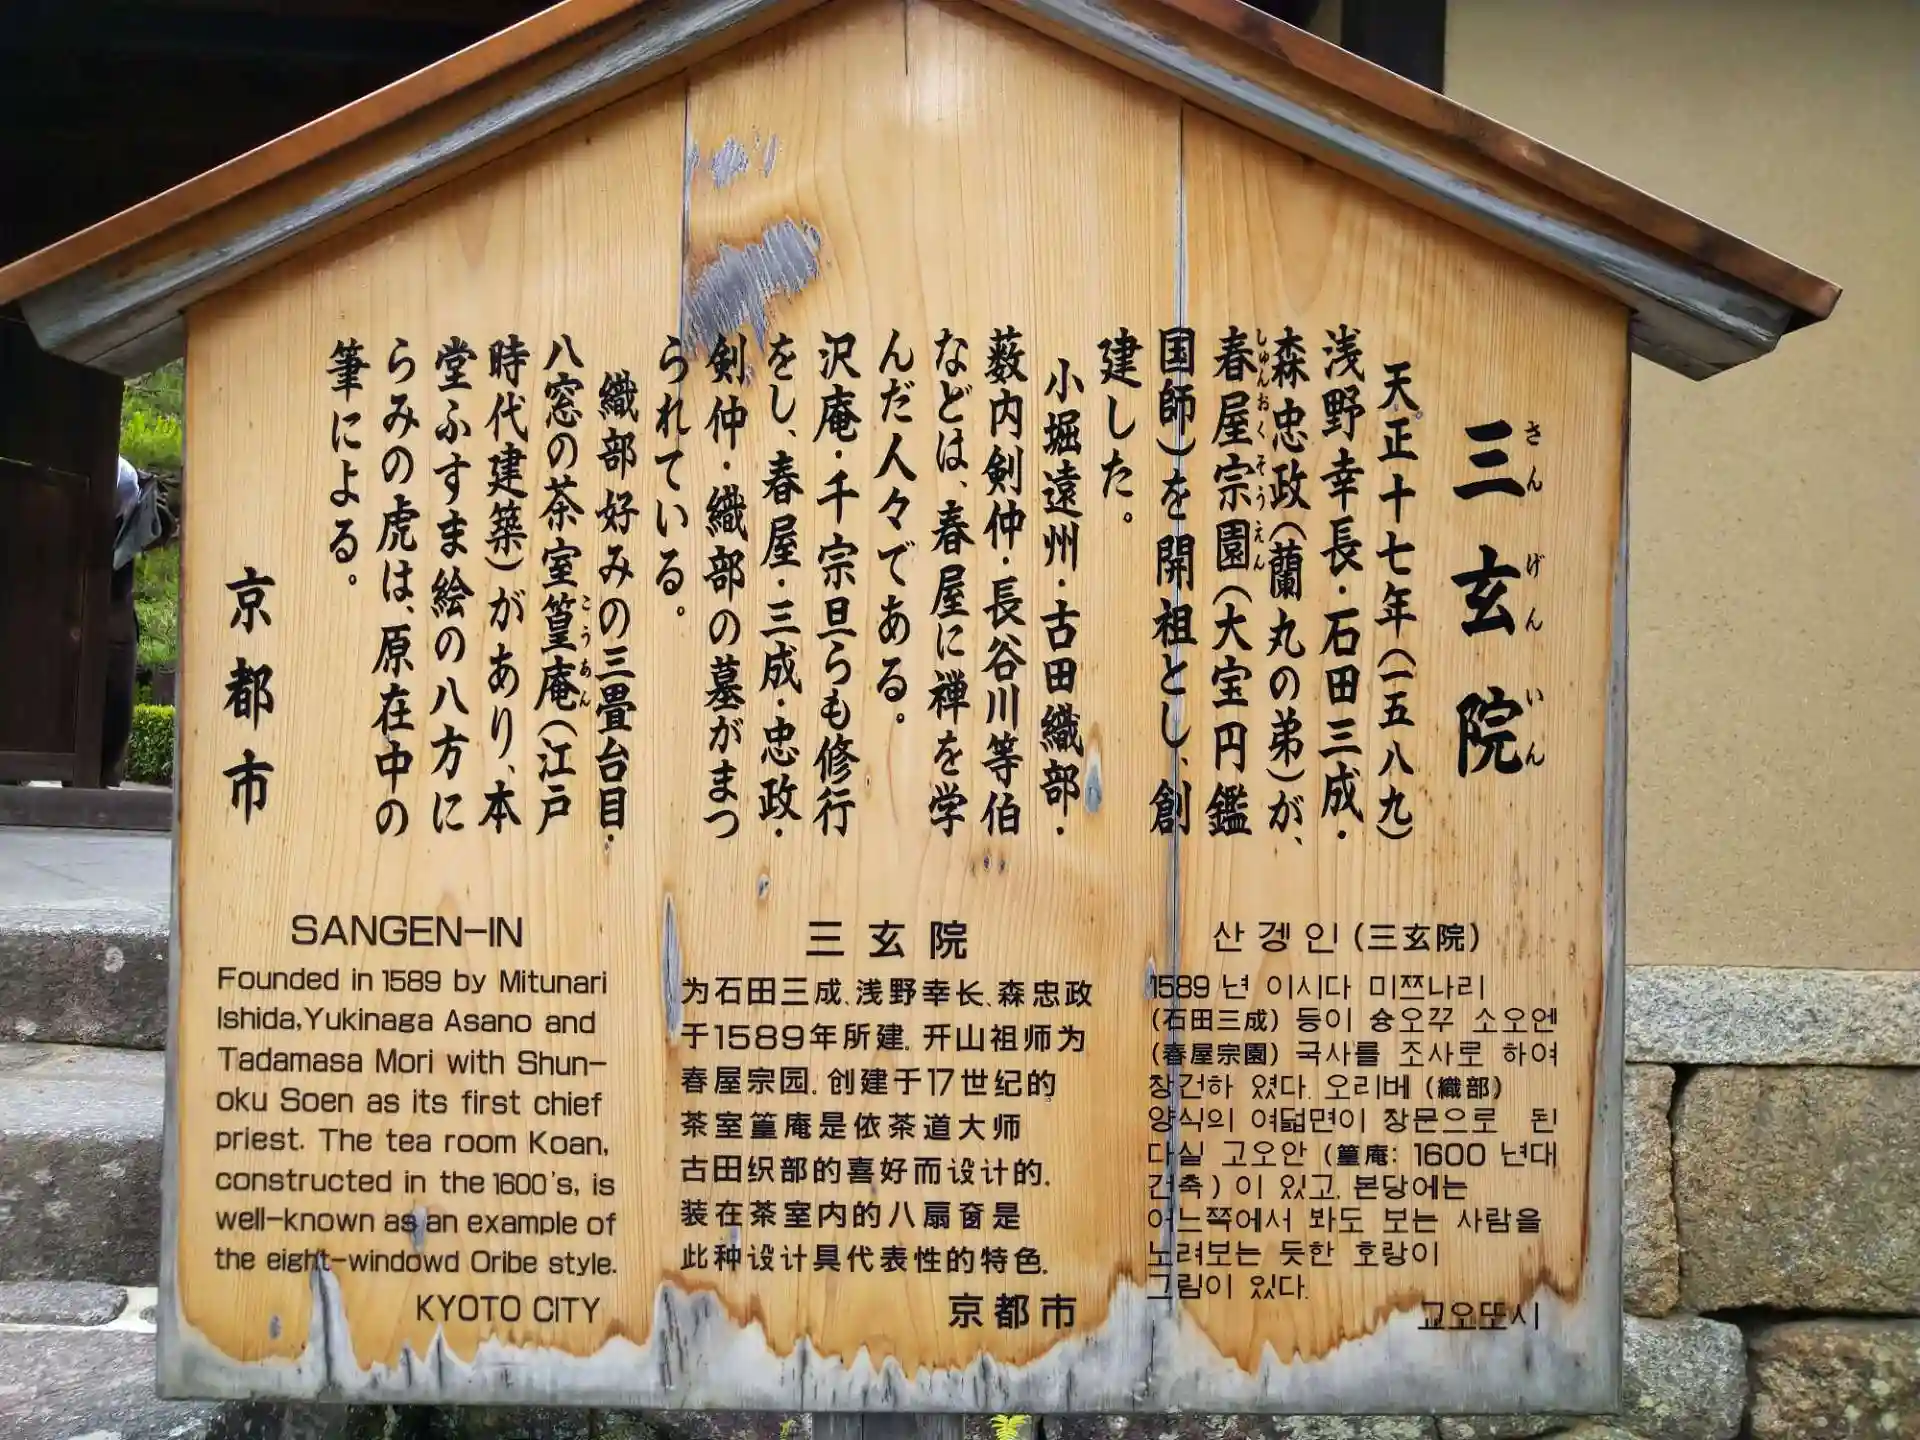 三玄院
天正十七年(一五八九)
浅野幸長・石田三成・
森忠政(蘭丸の弟)が、
春屋宗園(大宝円鑑
国師)を開祖とし、創
建した。
小堀遠州・古田織部・
薮内剣仲・長谷川等伯
などは、春屋に禅を学
んだ人々である。
沢庵・千宗旦らも修行
をし、春屋・三成・忠政・
剣仲・織部の墓がまつ
られている。
織部好みの三畳台目・
八窓の茶室篁庵(江戸
時代建築)があり、本
堂ふすま絵の八方に
らみの虎は、原在中の
筆による。
京都市
さんげんいん
しゅんおくそうえん
こうあん
SANGEN-IN
Founded in 1589 by Mitunari
Ishida,Yukinaga Asano and
Tadamasa Mori with Shun-
oku Soen as its first chief
priest. The tea room Koan,
constructed in the 1600's, is
well-known as an example of
the eight-windowd Oribe style.
KYOTO CITY
三玄院
为石田三成、浅野幸长、森忠政
于1589年所建. 开山祖师为
春屋宗园. 创建于17世纪的
茶室篁庵是依茶道大师
古田织部的喜好而设计的.
装在茶室内的八扇窗是
此种设计具代表性的特色.
京都市
산겡인(三玄院)
1589 년 이시다 미쯔나리
(石田三成) 등이 슝오꾸 소오엔
(春屋宗園) 국사를 조사로 하여
창건하 였다. 오리베 (織部)
양식의 여덟면이 창문으로 된
다실 고오안 (篁庵: 1600 년대
건축) 이 있고. 본당에는
어느쪽에서 봐도 보는 사람을
노려보는 듯한 호랑이
그림이 있다.
교오또시